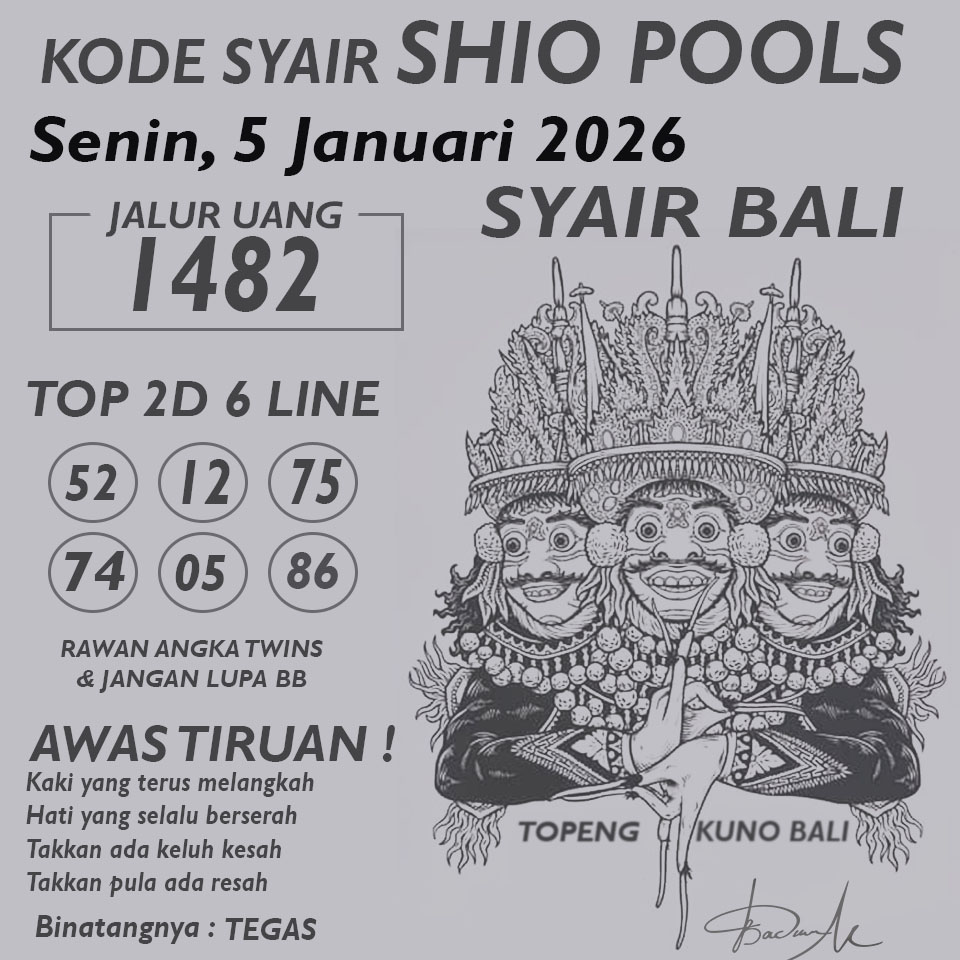 KODE SYAIR SHIO POOLS
Senin, 5 Januari 2026
SYAIR BALI
JALUR UANG
1482
TOP 2D 6 LINE
52 12 75
74 05 86
RAWAN ANGKA TWINS
& JANGAN LUPA BB
AWAS TIRUAN !
Kaki yang terus melangkah
Hati yang selalu berserah
Takkan ada keluh kesah
Takkan pula ada resah
Binatangnya : TEGAS
TOPENG KUNO BALI